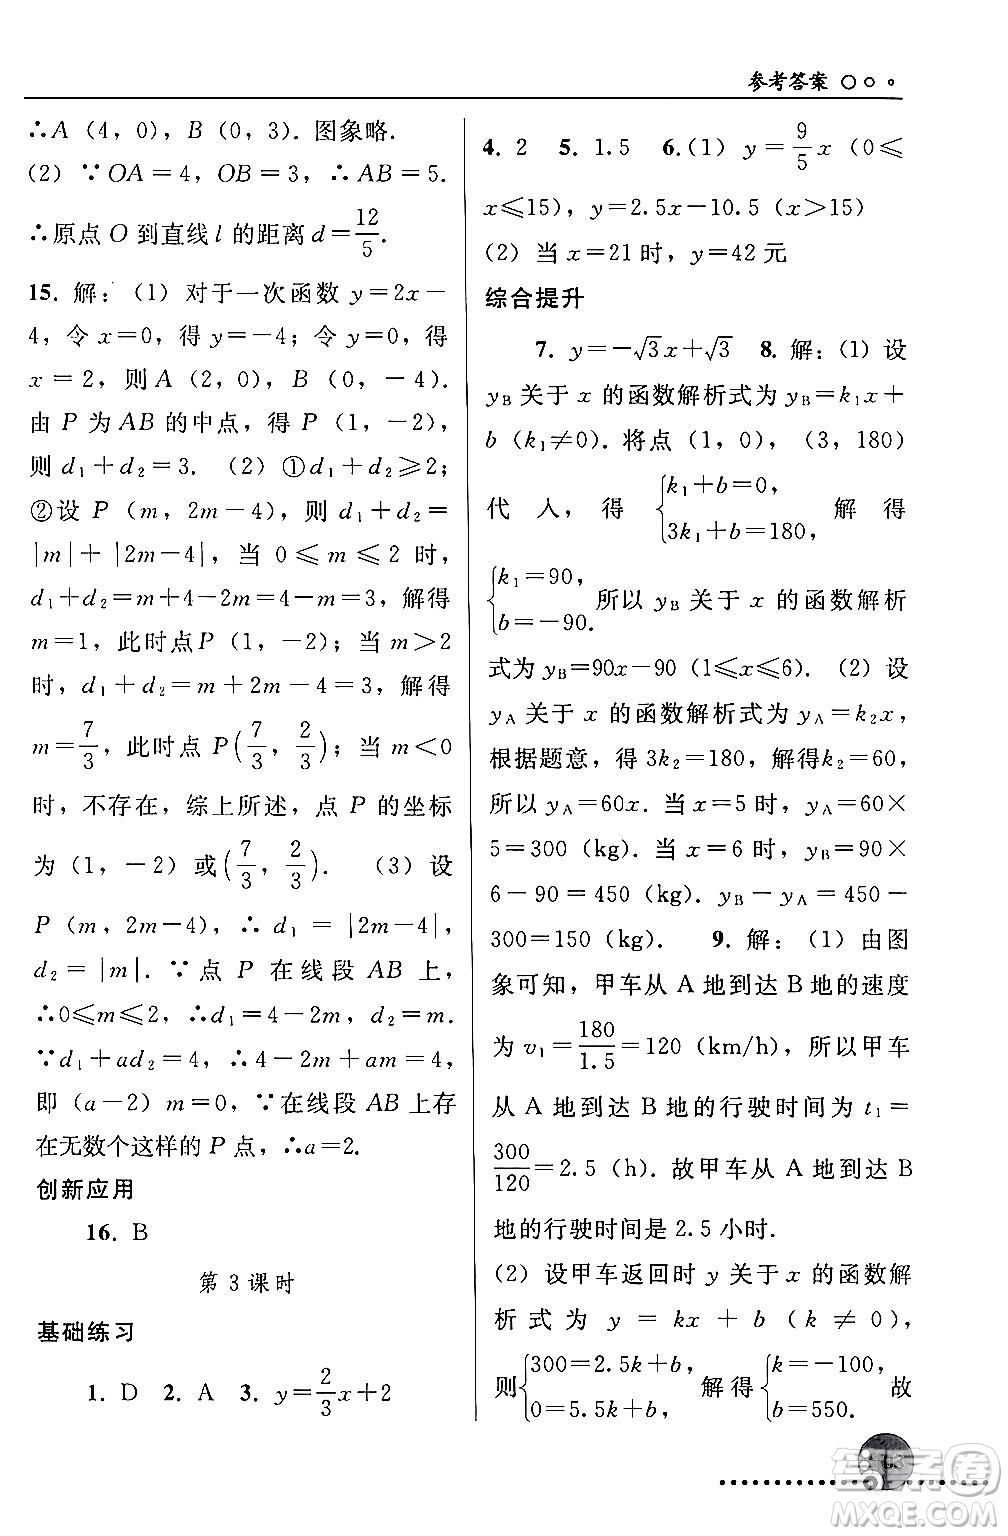 参考答案
∴A（4，0），B（0，3）．图象略．
（2）∵OA＝4，OB＝3，∴AB＝5．
∴原点 O 到直线 l 的距离 d＝12/5．
15．解：（1）对于一次函数 y＝2x－
4，令 x＝0，得 y＝－4；令 y＝0，得
x＝2，则 A（2，0），B（0，－4）．
由 P 为 AB 的中点，得 P（1，－2），
则 d₁＋d₂＝3．（2）①d₁＋d₂≥2；
②设 P（m，2m－4），则 d₁＋d₂＝
|m|＋|2m－4|，当 0≤m≤2 时，
d₁＋d₂＝m＋4－2m＝4－m＝3，解得
m＝1，此时点P（1，－2）；当 m＞2
时，d₁＋d₂＝m＋2m－4＝3，解得
m＝7/3，此时点 P(7/3，2/3)；当 m＜0
时，不存在，综上所述，点 P 的坐标
为（1，－2）或(7/3，2/3)．（3）设
P（m，2m－4），∴d₁＝|2m－4|，
d₂＝|m|．∵点 P 在线段 AB 上，
∴0≤m≤2，∴d₁＝4－2m，d₂＝m．
∵d₁＋ad₂＝4，∴4－2m＋am＝4，
即（a－2）m＝0，∵在线段 AB 上存
在无数个这样的 P 点，∴a＝2．
创新应用
16．B
第 3 课时
基础练习
1．D 2．A 3．y＝2/3x＋2
4．2 5．1.5 6.（1）y＝9/5x（0≤
x≤15），y＝2.5x－10.5（x＞15）
（2）当 x＝21 时，y＝42 元
综合提升
7．y＝－√3x＋√3 8．解：（1）设
yB 关于 x 的函数解析式为 yB＝k₁x＋
b（k₁≠0）．将点（1，0），（3，180）
代人，得 {k₁＋b＝0，3k₁＋b＝180， 解得
{k₁＝90，b＝－90． 所以 yB 关于 x 的函数解析
式为 yB＝90x－90（1≤x≤6）．（2）设
yA 关于 x 的函数解析式为 yA＝k₂x，
根据题意，得 3k₂＝180，解得 k₂＝60，
所以 yA＝60x．当 x＝5 时，yA＝60×
5＝300（kg）．当 x＝6 时，yB＝90×
6－90＝450（kg）．yB－yA＝450－
300＝150（kg）． 9．解：（1）由图
象可知，甲车从 A 地到达 B 地的速度
为 v₁＝180/1.5＝120（km/h），所以甲车
从 A 地到达 B 地的行驶时间为 t₁＝
300/120＝2.5（h）．故甲车从 A 地到达 B
地的行驶时间是 2.5 小时．
（2）设甲车返回时 y 关于 x 的函数解
析式为 y＝kx＋b（k≠0），
则{300＝2.5k＋b，0＝5.5k＋b， 解得{k＝－100，b＝550． 故
答案圈
MXQE.COM